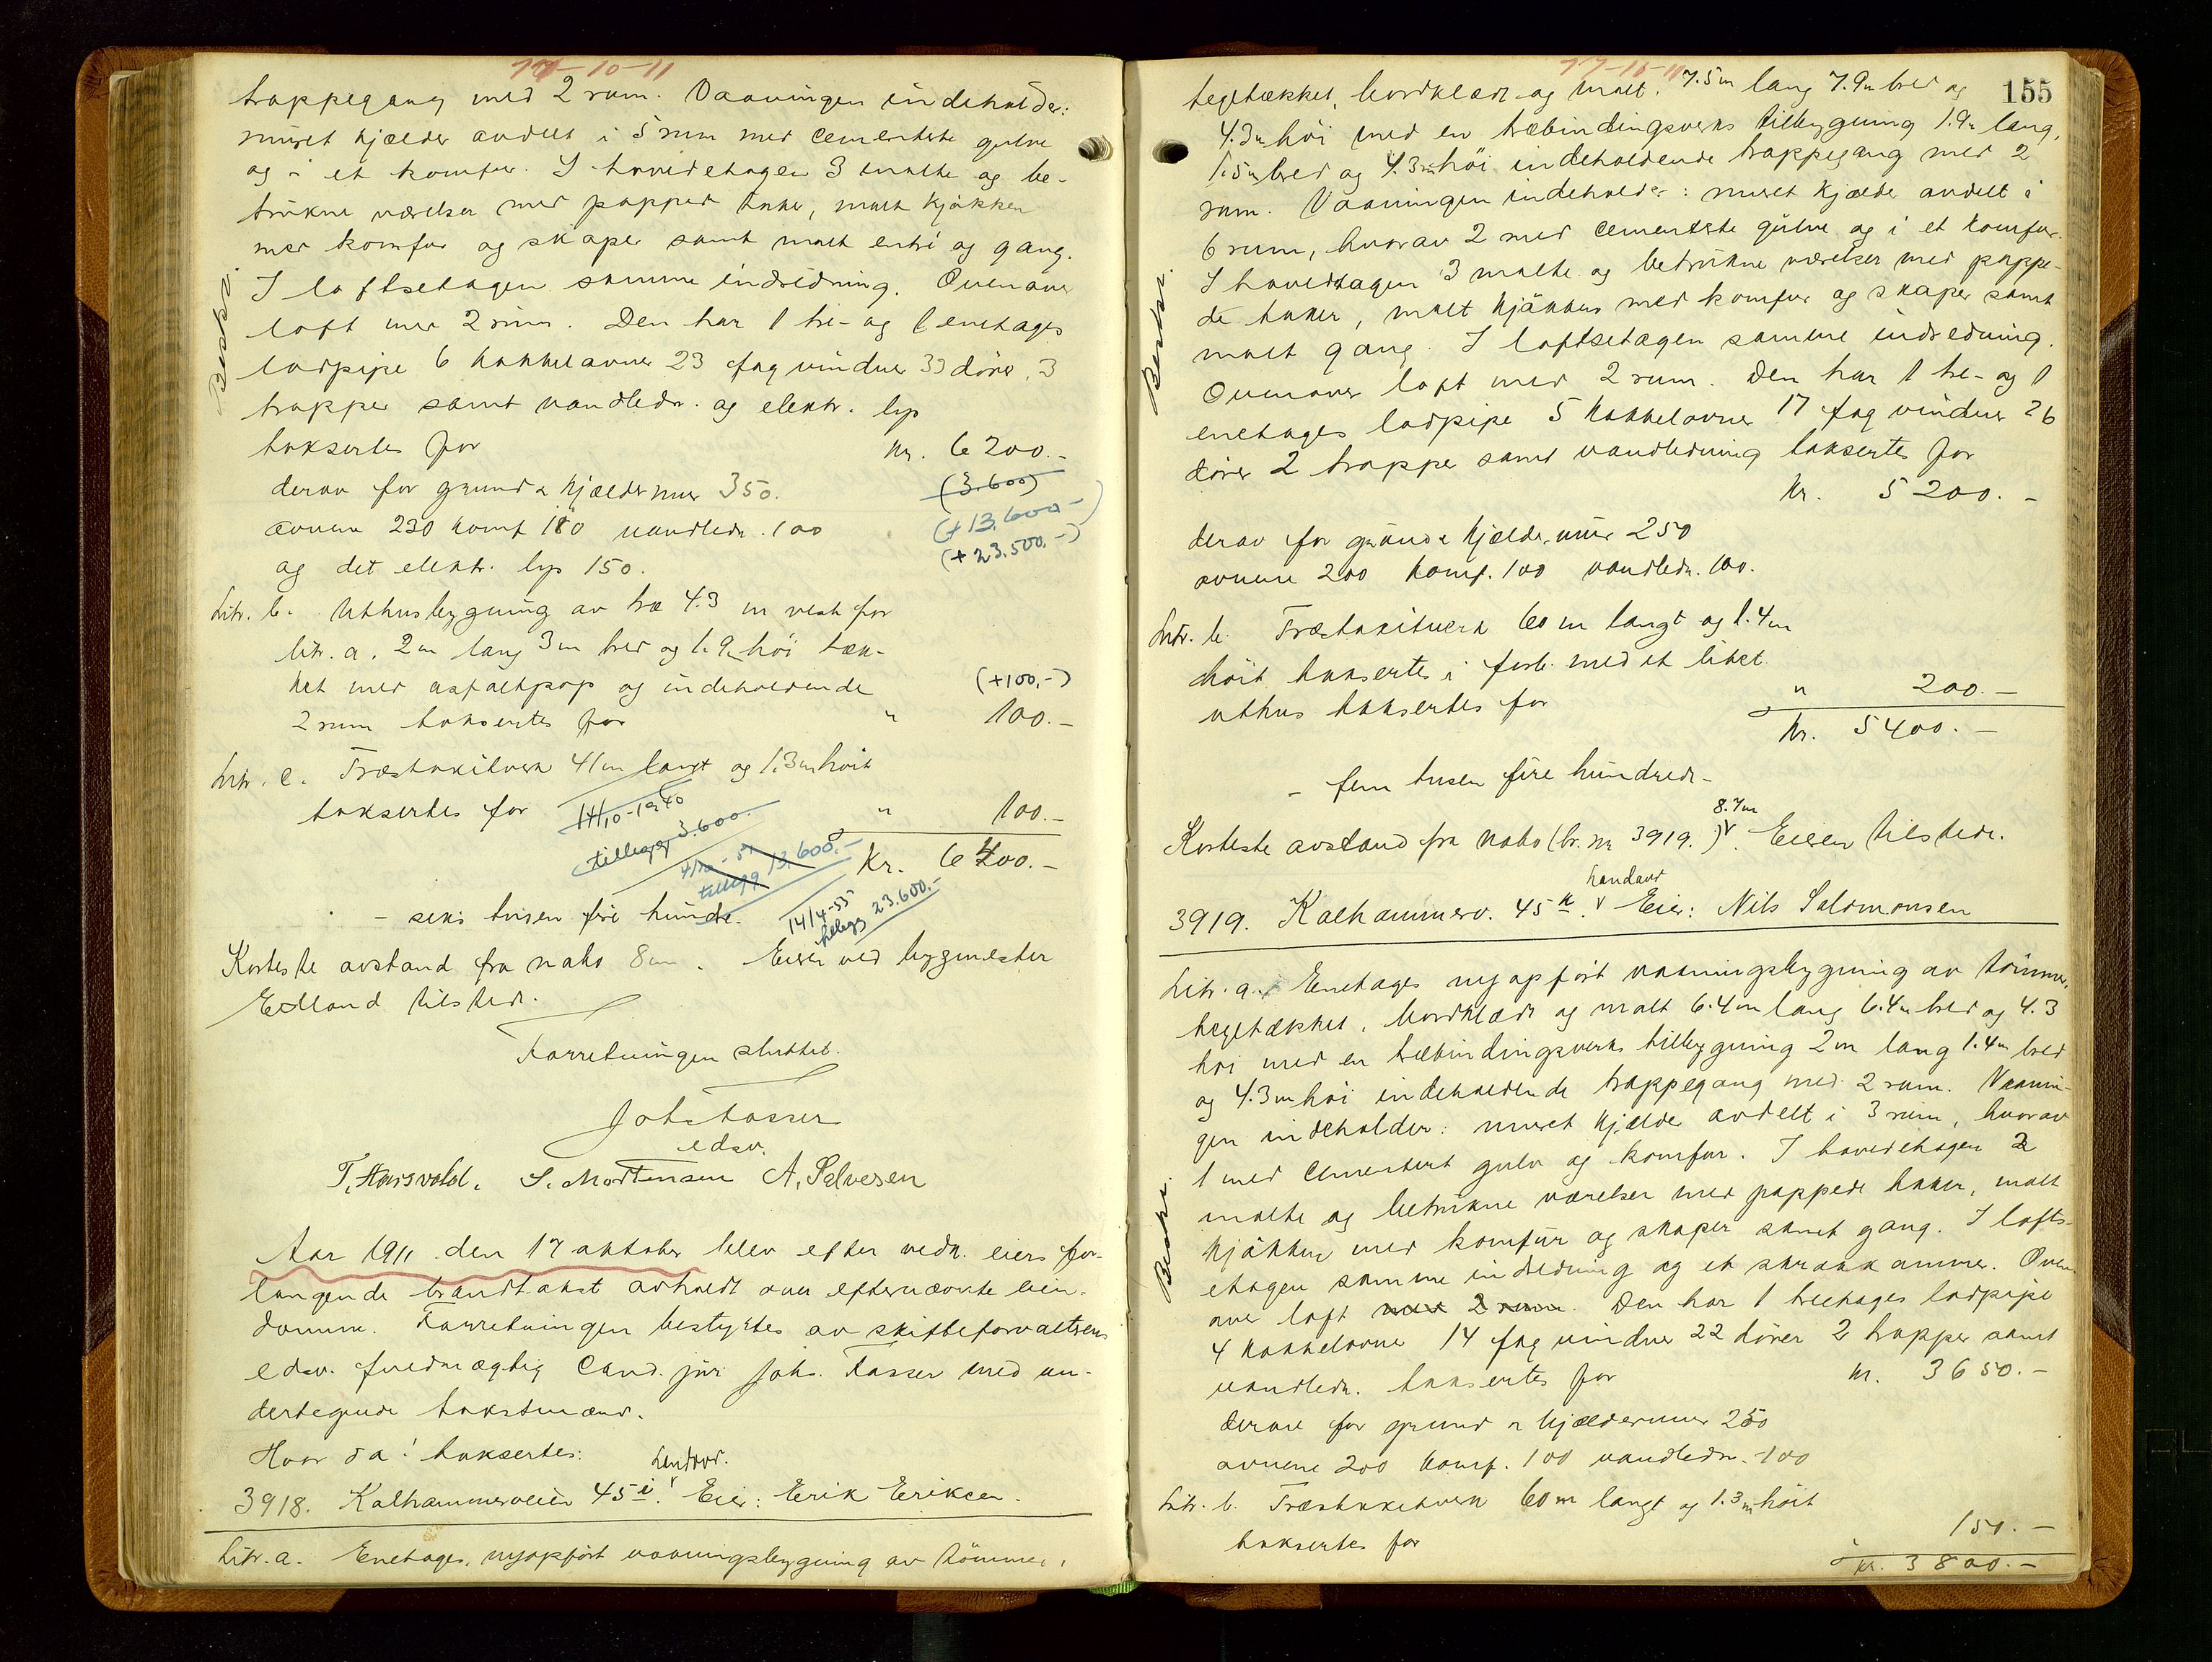 17-10-11
trappegang med 2 rum. Vaaningen indeholder:
muret kjælder avdelt i 5 rum med cementerte gulve
og i et komfur. I hovedetagen 3 malte og be-
trukne værelser med papped takker, malt kjøkken
med komfur og skaper samt malt entré og gang.
I loftsetagen samme indredning. Ovenover
loft med 2 rum. Den har 1 tre- og 1 enetages
lodpipe 6 kakkelovner 23 fag vinduer 33 dører, 3
trapper samt vandledn. og elektr. lys
taksertes for kr. 6200.-
Beskr.
derav for grund & kjældermur 350. (3.600)
ovnene 230 komf 180 vandledn. 100 (+13.600-)
og det elektr. lys 150. (+23.500,-)
Litr. b. Uthusbygning av træ 4.3 m vest for
litr. a. 2m lang 3m bred og 1.9m høi tæk-
ket med asfaltpap og indeholdende (+100,-)
2 rum taksertes for " 100.-
Litr. c. Træstakitverk 41m langt og 1.3m høit
taksertes for " 100.-
14/10-1940
tillegg 3.600.-
4/10-51
tillegg 13.600.-
Kr. 6400.-
14/4-55
tillegg 23.600.-
- seks tusen fire hundr.
Korteste avstand fra nabo 8m. Eieren ved bygmester
Edland tilstede.
Forretningen sluttet.
Johs Tasser
edsv.
T. Haisvold. S. Mortensen A. Salvesen
Aar 1911 den 17 oktober blev efter vedk. eiers for-
langende brandtakst avholdt over efternævnte eien-
domme. Forretningen bestyrtes av skifteforvalterens
edsv. fuldmægtig Cand. jur. Johs. Tasser med un-
dertegnede takstmænd.
Hvor da! taksertes:
Landorr.
3918. Kalhammerveien 45 i. Eier: Erik Eriksen.
Litr. a. Enetages, nyopført vaaningsbygning av tømmer,
17-10-11
155
teglækket, bordklædt og malt. 7.5m lang 7.9m bred og
4.3m høi med en træbindingsverks tilbygning 1.9m lang,
1.5m bred og 4.3m høi indeholdende trappegang med 2
rum. Vaaningen indeholder: muret kjælder avdelt i
6 rum, hvorav 2 med cementerte gulve og i et komfur.
I hovedetagen 3 malte og betrukne værelser med pappe-
de takker, malt kjøkken med komfur og skaper samt
malt gang. I loftsetagen samme indredning.
Ovenover loft med 2 rum. Den har 1 tre- og 1
enetages lodpipe 5 kakkelovner 17 fag vinduer 26
dører 2 trapper samt vandledning taksertes for
Beskr.
kr. 5200.-
derav for grund & kjældermur 250
ovnene 200 komf. 100 vandledn. 100.
Litr. b. Træstakitverk 60m langt og 1.4m
høit taksertes i forb. med et litet
uthus taksertes for " 200.-
Kr. 5400.-
- fem tusen fire hundrede -
8.7m
Korteste avstand fra nabo (br. nr 3919.). Eieren tilstede.
Landorr
3919. Kalhammerv. 45 k. Eier: Nils Salomonsen
Litr. a. Enetages nyopført vaaningsbygning av tømmer,
teglækket, bordklædt og malt 6.4m lang 6.4m bred og 4.3
høi med en træbindingsverks tilbygning 2m lang 1.4m bred
og 4.3m høi indeholdende trappegang med 2 rum. Vaanin-
gen indeholder: muret kjælder avdelt i 3 rum, hvorav
1 med cementert gulv og komfur. I hovedetagen 2
malte og betrukne værelser med pappede takker, malt
kjøkken med komfur og skaper samt gang. I lofts-
etagen samme indredning og et skraakammer. Oven-
over loft med 2 rum. Den har 1 treetages lodpipe
4 kakkelovne 14 fag vinduer 22 dører 2 trapper samt
vandledn. taksertes for kr. 3650.-
Beskr.
derav for grund & kjældermur 250
ovnene 200 komf. 100 vandledn. 100
Litr. b. Træstakitverk 60m langt og 1.3m høit
taksertes for 150.-
kr. 3800.-